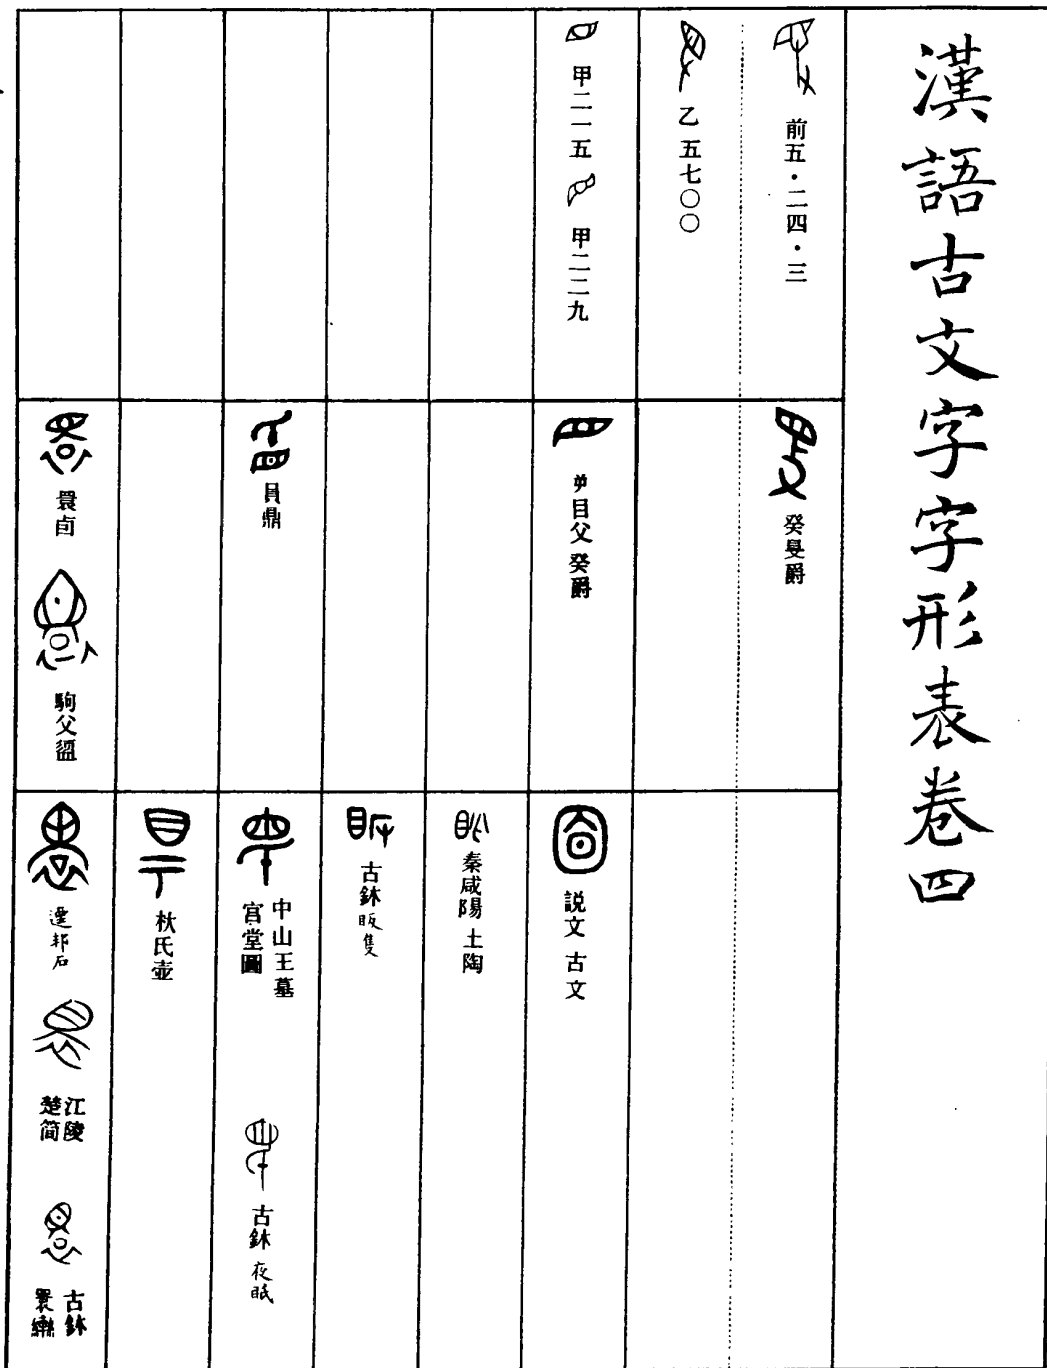 漢語古文字字形表卷四
前五·二四·三
癸𡕥爵
乙五七〇〇
甲二一五
甲二二九
目父癸爵
説文古文
秦咸陽土陶
古鉨
員鼎
中山王墓
宮堂圖
古鉨夜眠
杕氏壺
睘卣
駒父盨
江陵
楚简
古鉨